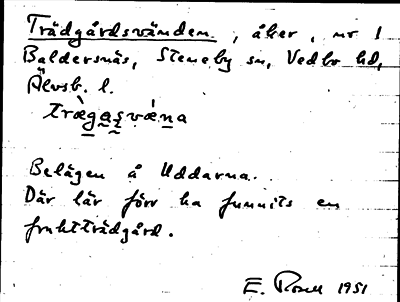 Trädgårdsvänden, åker, nr 1
Baldersnäs, Steneby sn, Vedbo hd,
Älvsb. l.
trægasvæna
Belägen å Uddarna.
Där lär förr ha funnits en
fruktträdgård.
E. Rosell 1951